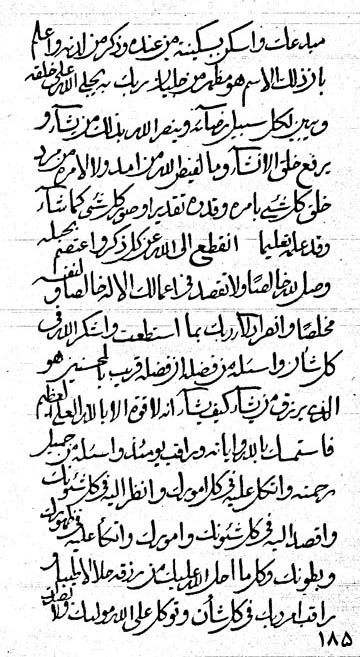 مبدعات واسكن بسكينة من عنده وذكر من لدنه واعلم
بان ذلك الاسم هو مظهر من ربك به يتجلى الله على خلقه
ويبين لكل سبيل رضائه وينصر الله بذلك من يشآء و
يرفع خلق الانشآء وما لفيض الله من امد ولا لامره من مرد
خلق كل شيء بامره وقدره تقديرا وصور كل شيء كما شآء
وقد علمه تعليما انقطع الى الله عن كل ذكر واعتصم بحبله
وصل لله خالصا ولا تقصد في اعمالك الا له خالصا لنفسه و
مخلصا وانفراد لذكر ربك بما استطعت واشكر الله في
كل شأن واسئله من فضله ان فضله قريب بالمحسنين هو
الذي يرزق من يشآء كيف يشآء انه لا قوة الا بالله العلي العظيم
فاستمسك بالله واياته وراقب يومئذ واسئله من جميل
رحمته واتكل عليه في كل امورك وانظر اليه في كل شئونك
واقصد اليه في كل شئونك وامورك واتكأ عليه في ظهورك
وبطونك وكل ما احل الله عليك من رزقه حلالا
راقب امر ربك في كل شأن وتوكل على الله مولاك ولا
١٨٥